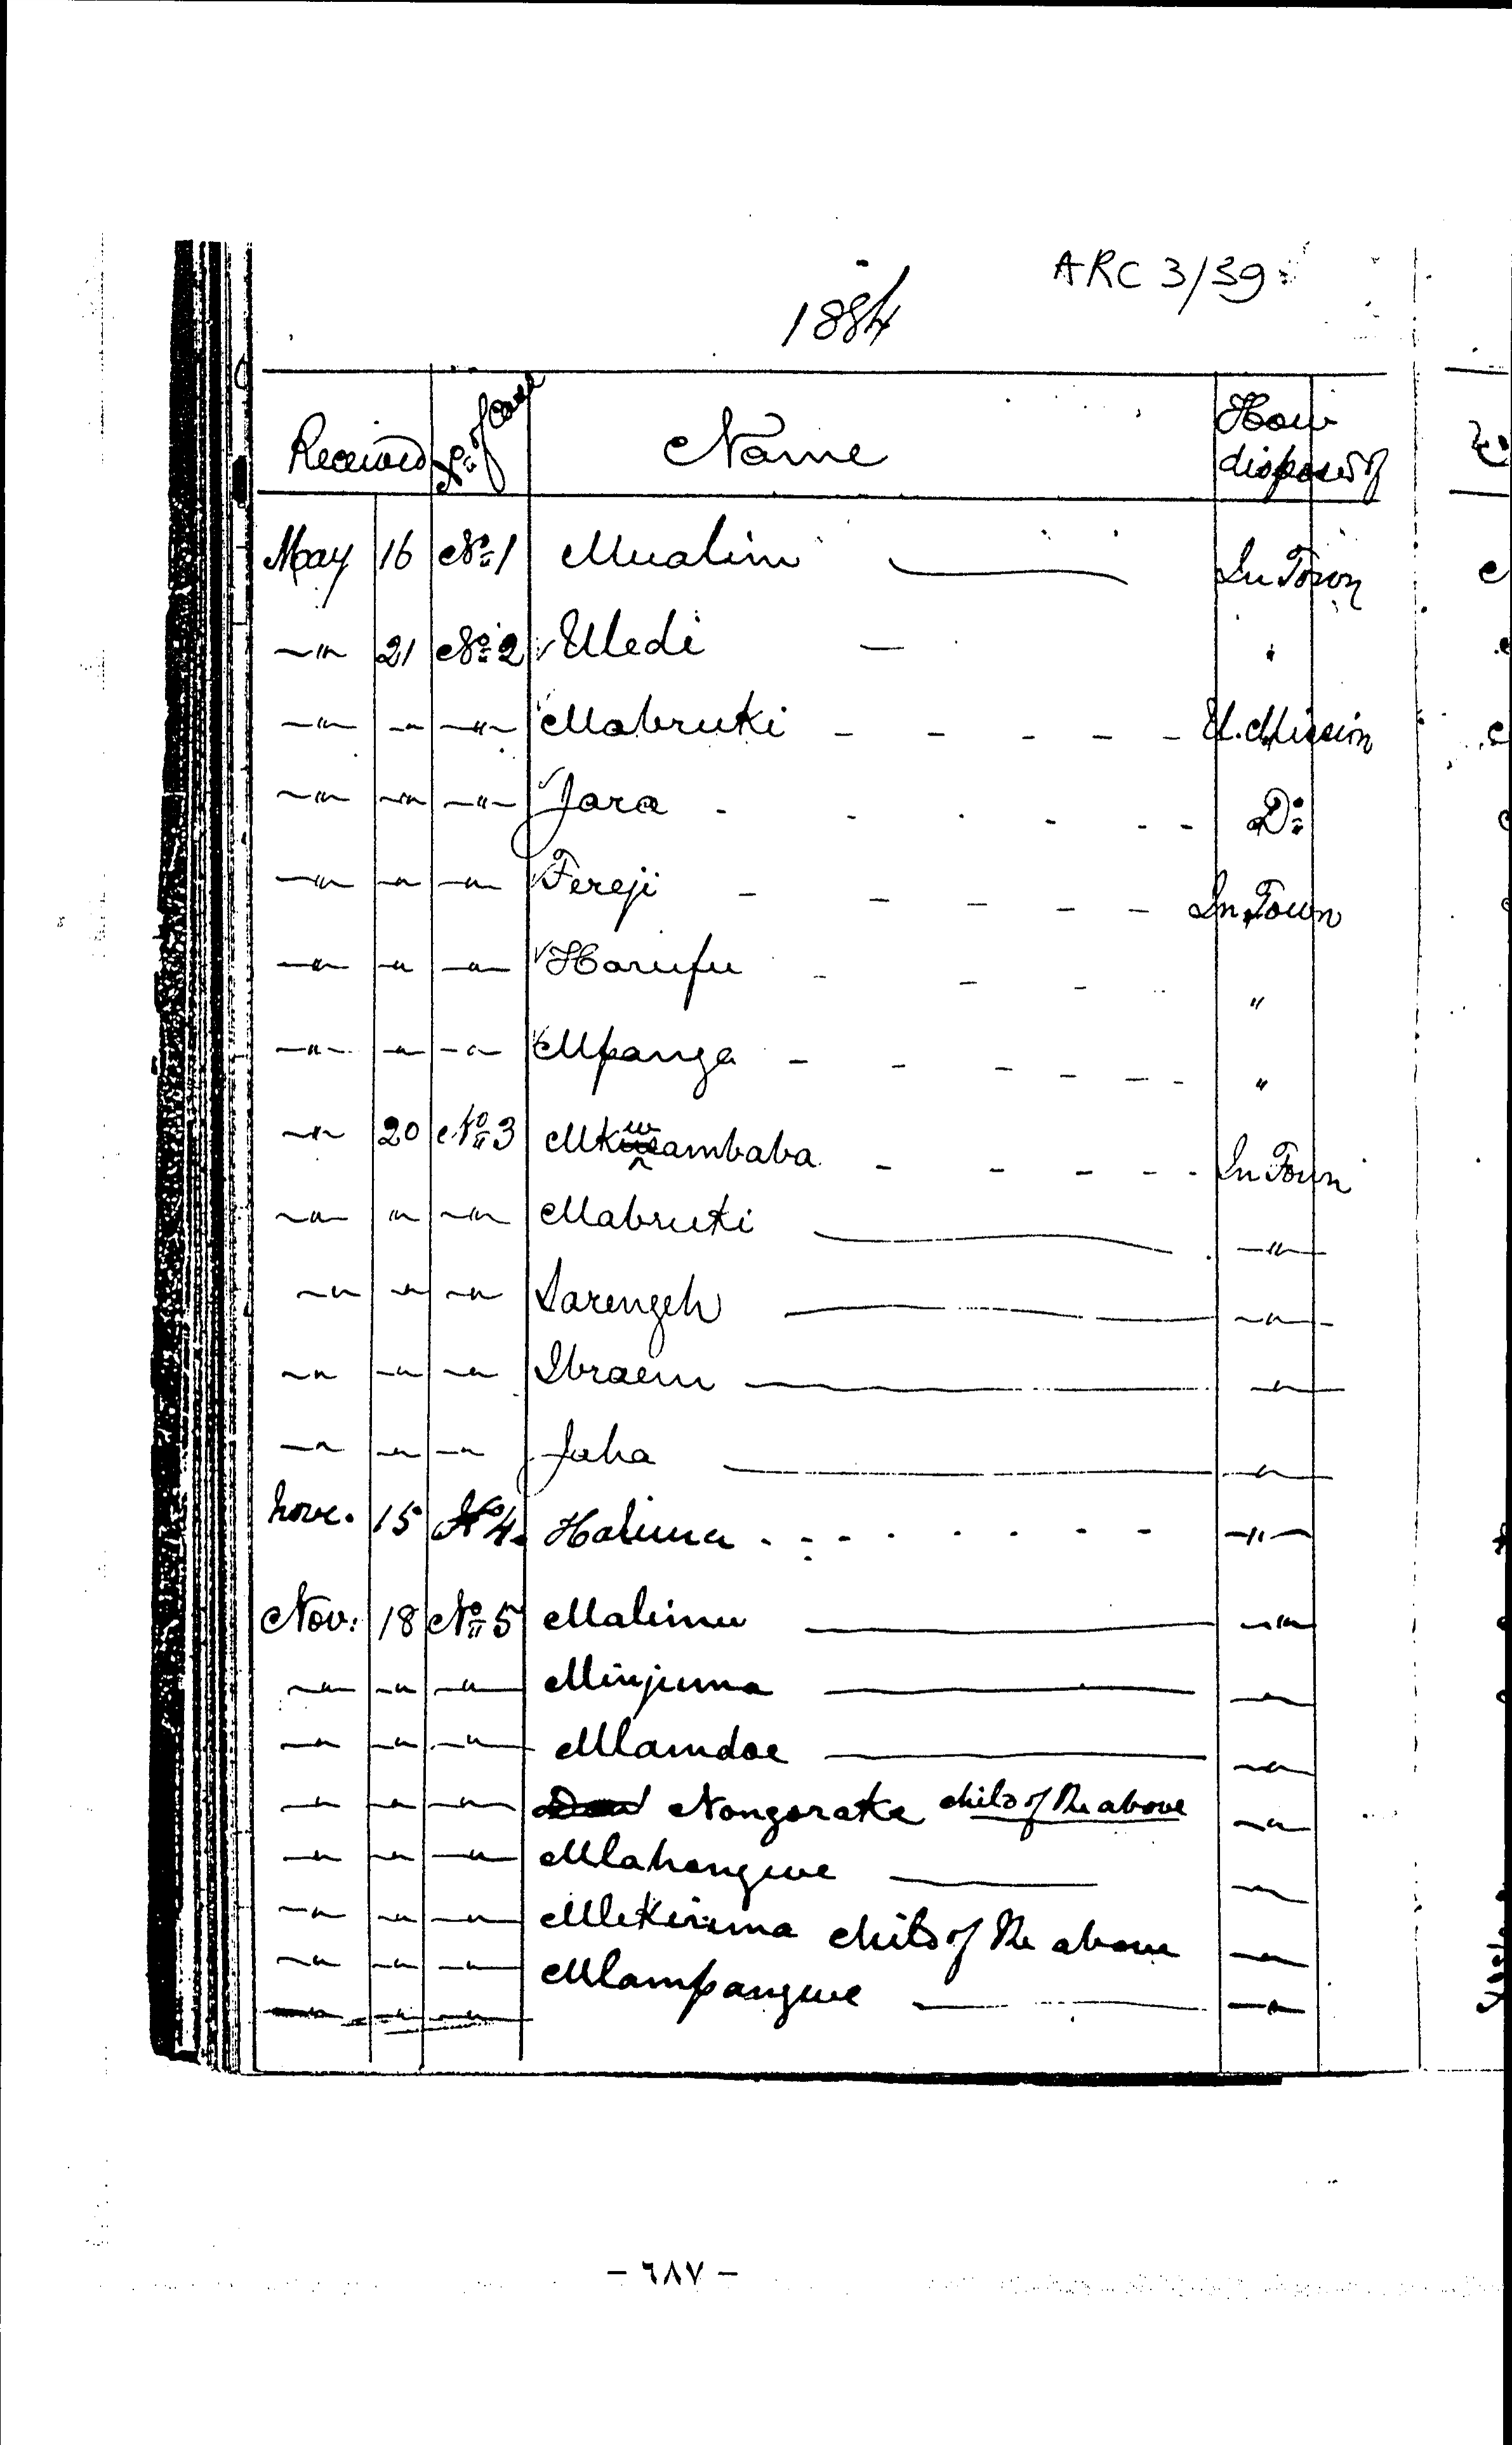 ARC 3/39
1884
Received No of Case Name How disposed of
May 16 No 1 Mualim In Town
" 21 No 2 Uledi "
" " " Mabruki U. Mission
" " " Jara Do
" " " Fereji In Town
" " " Harufu "
" " " Mpanga "
" 20 No 3 Mkwambaba In Town
" " " Mabruki "
" " " Sarengeh "
" " " Ibraem "
" " " Juha "
Nove. 15 No 4 Halima "
Nov. 18 No 5 Malimu "
" " " Minjuma "
" " " Mlamdoe "
" " " Nongorake child of the above "
" " " Mlahongwe "
" " " Mlekirima child of the above "
" " " Mlampangwe "
- ٦٨٧ -